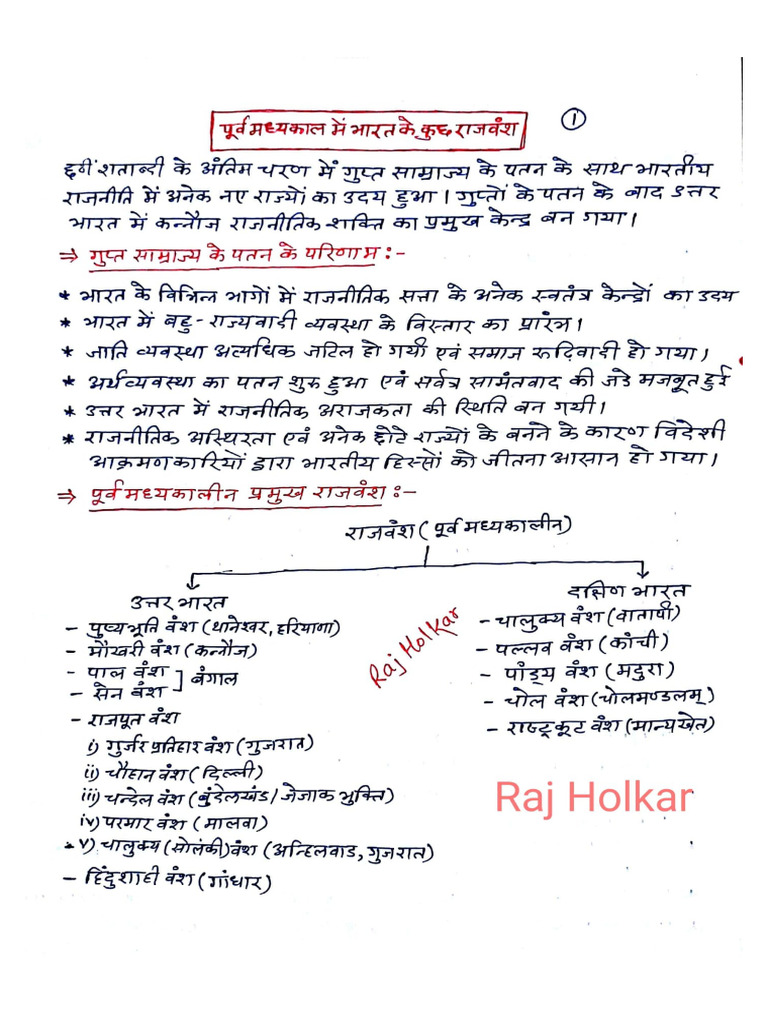 पूर्व मध्यकाल में भारत के कुछ राजवंश
1
छठीं शताब्दी के अंतिम चरण में गुप्त साम्राज्य के पतन के साथ भारतीय
राजनीति में अनेक नए राज्यों का उदय हुआ। गुप्तों के पतन के बाद उत्तर
भारत में कन्नौज राजनीतिक शक्ति का प्रमुख केन्द्र बन गया।
⇒ गुप्त साम्राज्य के पतन के परिणाम :-
* भारत के विभिन्न भागों में राजनीतिक सत्ता के अनेक स्वतंत्र केन्द्रों का उदय
* भारत में बहु-राज्यवादी व्यवस्था के विस्तार का प्रारंभ।
* जाति व्यवस्था अत्यधिक जटिल हो गयी एवं समाज रूढिवादी हो गया।
* अर्थव्यवस्था का पतन शुरू हुआ एवं सर्वत्र सामंतवाद की जडे मजबूत हुई
* उत्तर भारत में राजनीतिक अराजकता की स्थिति बन गयी।
* राजनीतिक अस्थिरता एवं अनेक छोटे राज्यों के बनने के कारण विदेशी
आक्रमणकारियों द्वारा भारतीय हिस्सों को जीतना आसान हो गया।
⇒ पूर्व मध्यकालीन प्रमुख राजवंश :-
राजवंश (पूर्व मध्यकालीन)
उत्तर भारत
- पुष्यभूति वंश (थानेश्वर, हरियाणा)
- मौखरी वंश (कन्नौज)
- पाल वंश
- सेन वंश
] बंगाल
- राजपूत वंश
i) गुर्जर प्रतिहार वंश (गुजरात)
ii) चौहान वंश (दिल्ली)
iii) चन्देल वंश (बुंदेलखंड/जेजाक भुक्ति)
iv) परमार वंश (मालवा)
v) चालुक्य (सोलंकी) वंश (अन्हिलवाड, गुजरात)
- हिंदुशाही वंश (गांधार)
दक्षिण भारत
- चालुक्य वंश (वातापी)
- पल्लव वंश (कांची)
- पाँड्य वंश (मदुरा)
- चोल वंश (चोलमण्डलम्)
- राष्ट्रकूट वंश (मान्यखेत)
Raj Holkar
Raj Holkar